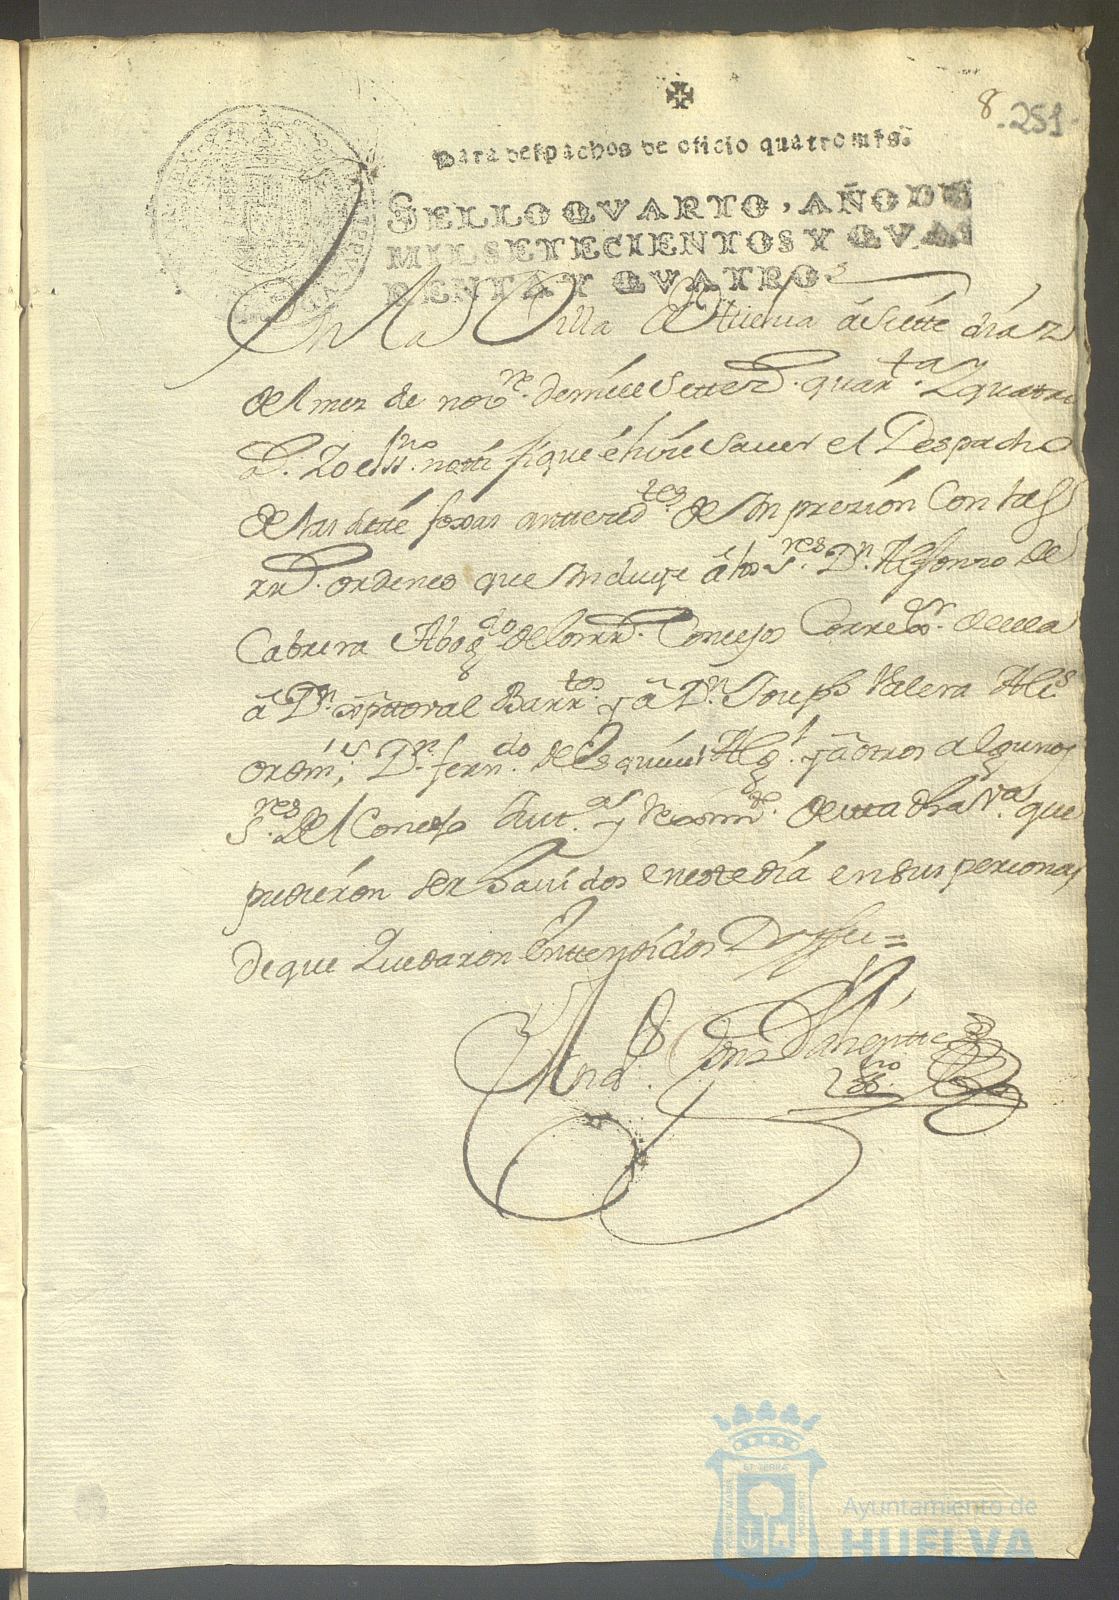 8
251
Para despachos de oficio quatro mrs.
SELLO QVARTO, AÑO DE
MIL SETECIENTOS Y QVA
RENTA Y QVATRO.
En la Villa de Huelva á siette dias
del mes de novre. de mill settezs. quarta. y quatro
as. Yo el ssno. nottifiqué é hize saver el Despacho
de las siette foxas anttezedtes. de Impresión con las
rrs. ordenes que Incluye â los sres. Dn. Alfonso de
Cabrera Abogdo. de los rrs. Consejos Corregor. de ella
â Dn. Xptoval Barrtos. y â Dn. Joseph Valera Alcs.
ordinrs. Dn. ferndo. de Esquivel Algl. y â otros algunos
sres. del Concejo Justa. y Reximto. de esta dha Va. que
pudieron ser havidos en este dia en sus personas
de que Quedaron Enttendidos Doy fee =
Valientte
Essno.
Ayuntamiento de
HUELVA